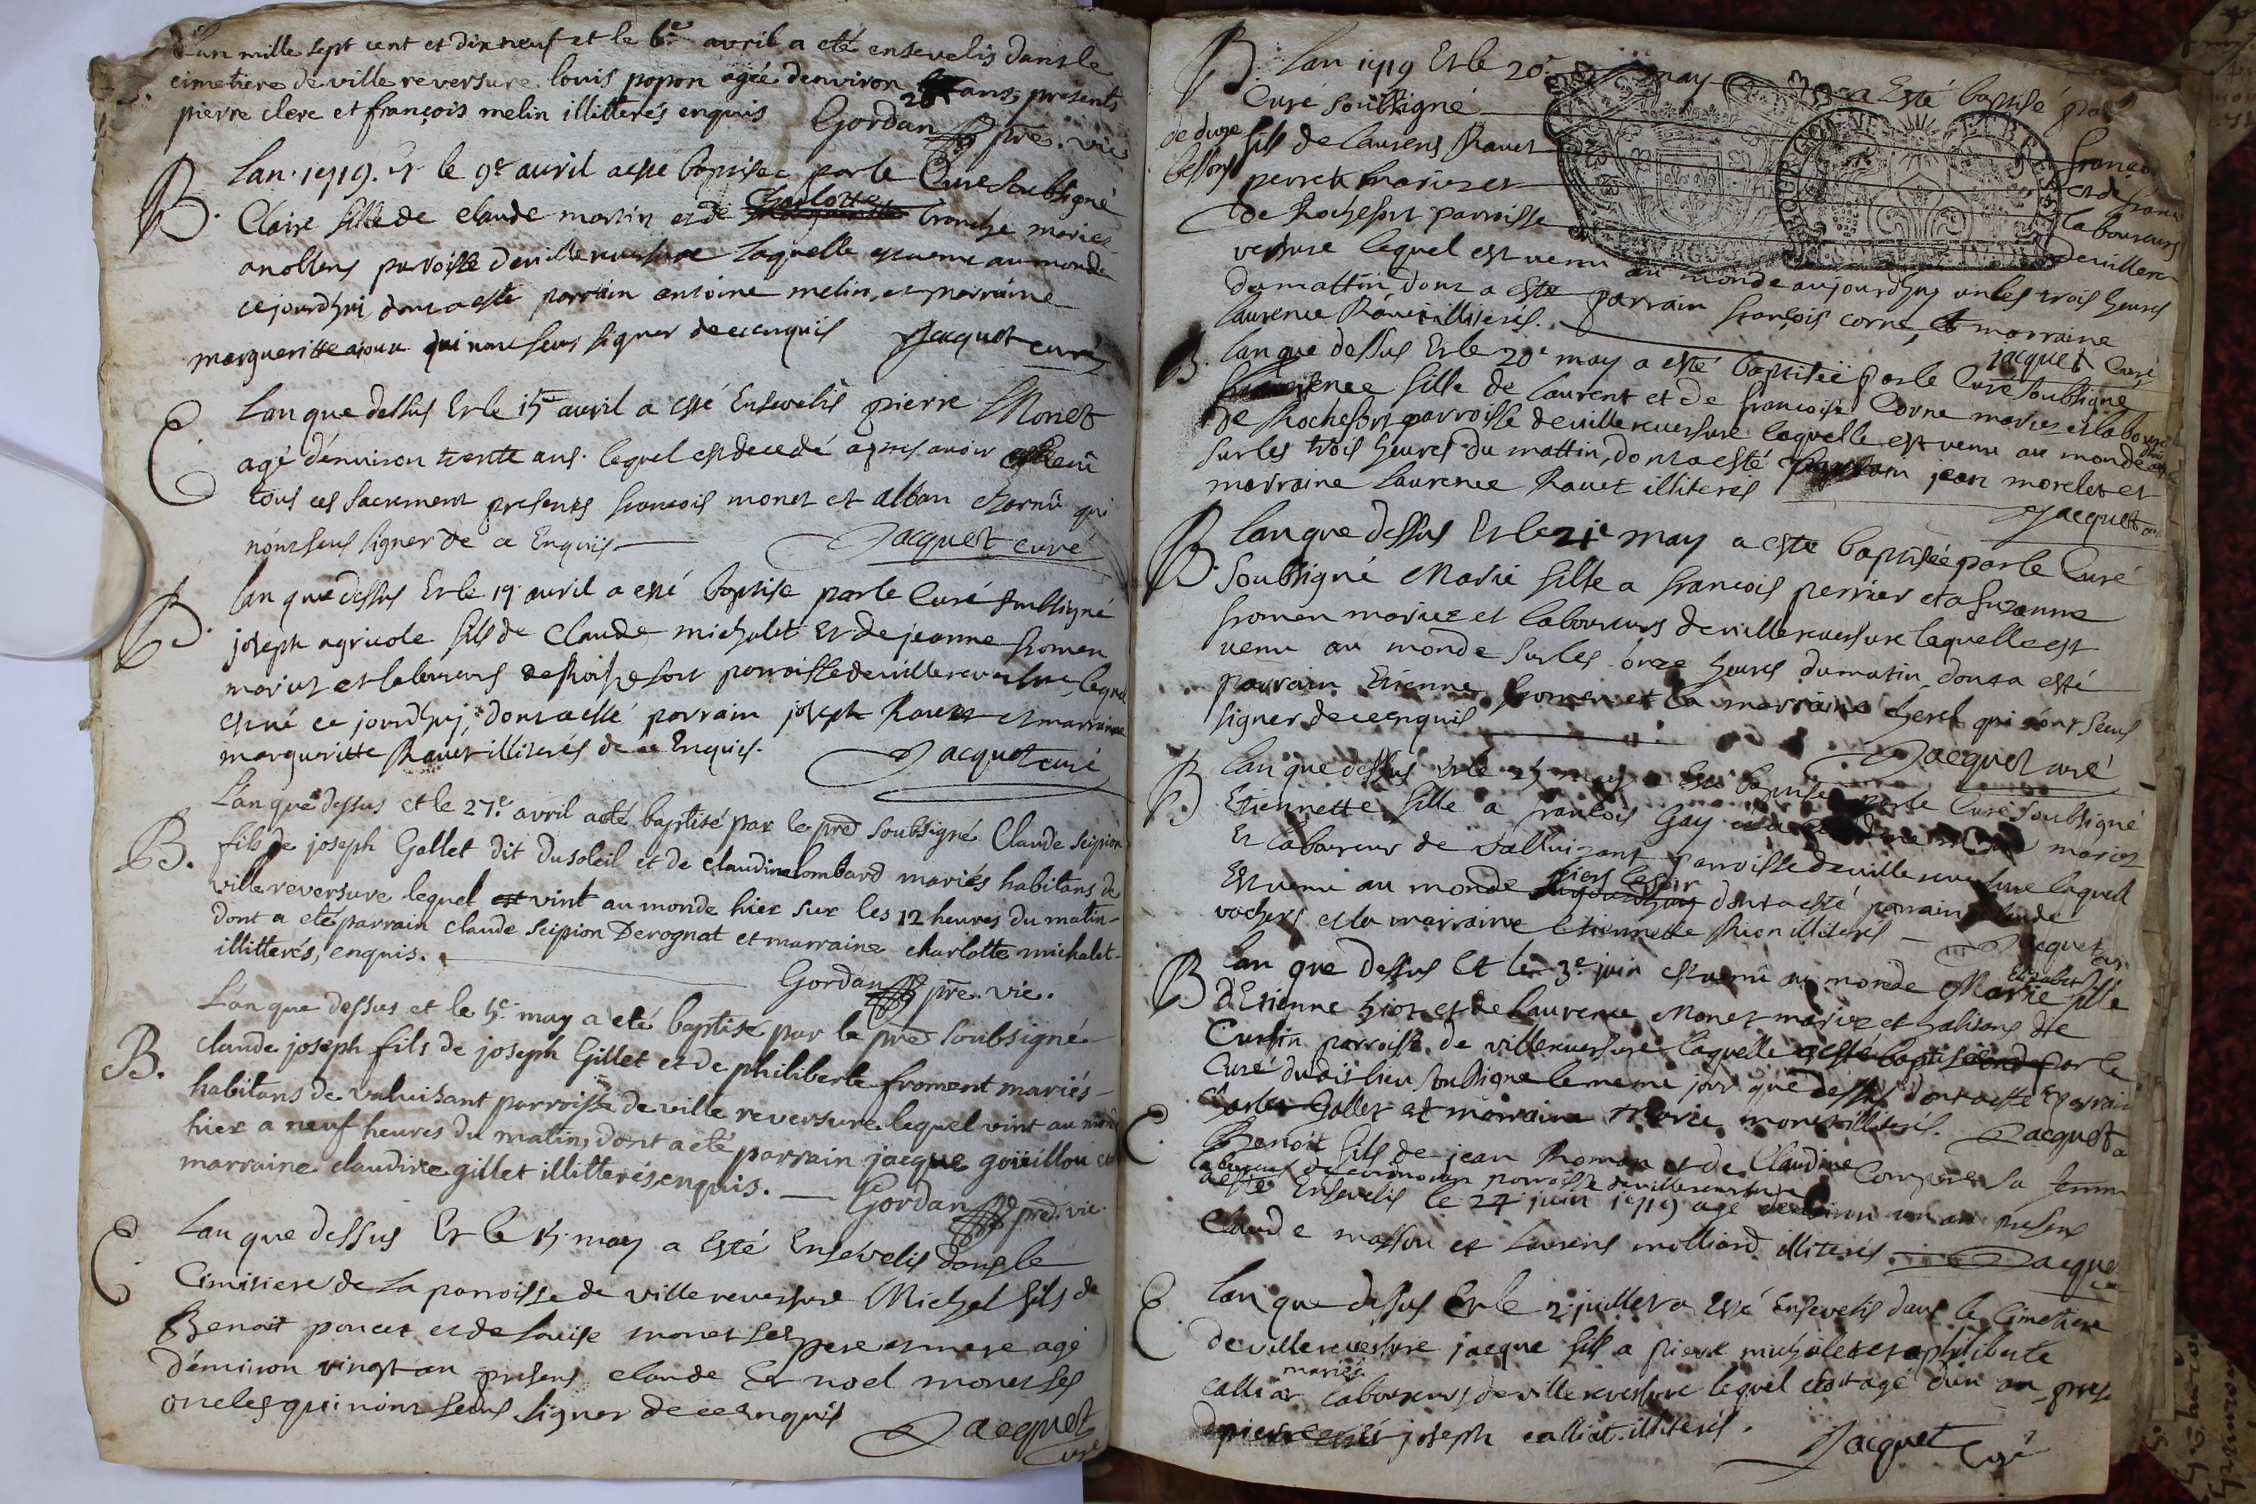 L'an mille sept cent et dix neuf et le 6e avril a eté ensevelis dans le
cimetiere de ville reversure louis popon agée d'environ 28 ans, presents
pierre clerc et françois melin illitterés enquis Gordan pre. vic
B. Lan 1719. Et le 9e avril a esté baptisée par le Curé soubsigné
Claire fille de claude martin et de Charlotte tranche mariez
parroisse de villereversure laquelle est venue au monde
ce jourdhui dont a esté parrain antoine melin, et marraine
margueritte qui nont sceus signer de ce enquis Jacquet curé
E. Lan que dessus Et le 15e avril a esté Ensevelis pierre Monet
agé d'environ trente ans. lequel est decedé apres avoir receu
tous ces sacrement presents francois monet et alban charnu qui
n'ont sceus signer de ce Enquis Jacquet curé
B. Lan que dessus Et le 19 avril a esté baptise par le Curé soubsigné
joseph agricole fils de Claude michalet Et de jeanne fromen
mariez et laboureurs de Rochefort parroisse de villereversure, lequel
est né ce jourdhuj, dont a esté parrain joseph Ravet et marraine
margueritte Ravet illiterés de ce Enquis. Jacquet curé
L'an que dessus et le 27e. avril a eté baptisé par le pre soubsigné Claude scipion
B. fils de joseph Gallet dit dusoleil et de claudine lombard mariés habitans de
ville reversure lequel est vint au monde hier sur les 12 heures du matin
dont a eté parrain claude scipion Derognat et marraine charlotte michalet
illitterés, enquis. Gordan pre. vic.
L'an que dessus et le 5e. may a eté baptise par le pre soubsigné
B. claude joseph fils de joseph Gillet et de philiberte froment mariés
habitans de valuisant parroisse de ville reversure lequel vint au monde
hier a neuf heures du matin, dont a eté parrain jacque goüillou et
marraine claudine gillet illitterés enquis. Gordan pre. vic.
E. Lan que dessus Et le 15 may a Esté Ensevelis dans le
Cimitiere de la parroisse de ville reversure Michel fils de
Benoit poncet et de louise monet ses pere et mere agé
d'environ vingt an presens claude Et noel monet ses
oncles qui n'ont sceus signer de ce enquis Jacquet
curé
B. Lan 1719 Et le 20e may a Esté baptisé par
Curé soubsigné françois
de duxe fils de laurens Ravet et de
bessons perret mariez et laboureurs
de Rochefort parroisse de villere
versure lequel est venu au monde aujourdhuy sur les trois heures
du mattin, dont a este parrain françois corne, et marraine
laurence Ravet illiterés. jacquet Curé
B. Lan que dessus Et le 20e may a esté baptisée par le Curé soubsigné
fille de laurent et de francoise Corne mariez et labour
de Rochefort parroisse de villereversure laquelle est venu au monde
sur les trois heures du mattin, dont a esté parrain jean morelet et
marraine laurence Ravet illiteres Jacquet
B. Lan que dessus Et le 21e may a este baptisée par le Curé
soubsigné Marie fille a francois perrier et a suzanne
fromen mariez et laboureurs de villereversure laquelle est
venu au monde sur les onze heures du matin, dont a esté
parrain Etienne fromen et la marraine qui nont sceus
signer de ce enquis Jacquet curé
B. Lan que dessus Et le 25 may a Esté baptise par le Curé soubsigné
Etiennette fille a francois Gay mariez
Et laboureur de valluizant parroisse de villereversure laquell
Est venu au monde hier le soir dont a esté parrain claude
vachers et la marraine Etiennette illiteres Jacquet cur
B Lan que dessus Et le 3e juin est venu au monde Marie Elizabet fille
d'Etienne hiot et de laurence Monet mariez et habitans de
Curtin parroisse de villereversure laquelle a esté baptisée par le
Curé dudit lieu soubsigne le meme jour que dessus dont a esté parrain
Charles Gallet et marraine Marie monet illiterés. Jacquet
E. Benoit fils de jean Roman et de Claudine Compere sa femme
laboureurs de parroisse de villereversure
a esté Ensevelis le 24 juin 1719 agé denviron un an presens
Claude masson et laurens molliard illiterés Jacquet
E. Lan que dessus Et le 2 juillet a esté Ensevelis dans le Cimetiere
de villereversure jacque fils a pierre michalet et a philiberte
calliat mariés laboureurs de villereversure lequel etoit agé d'un an presen
joseph calliat illiterés. Jacquet Curé